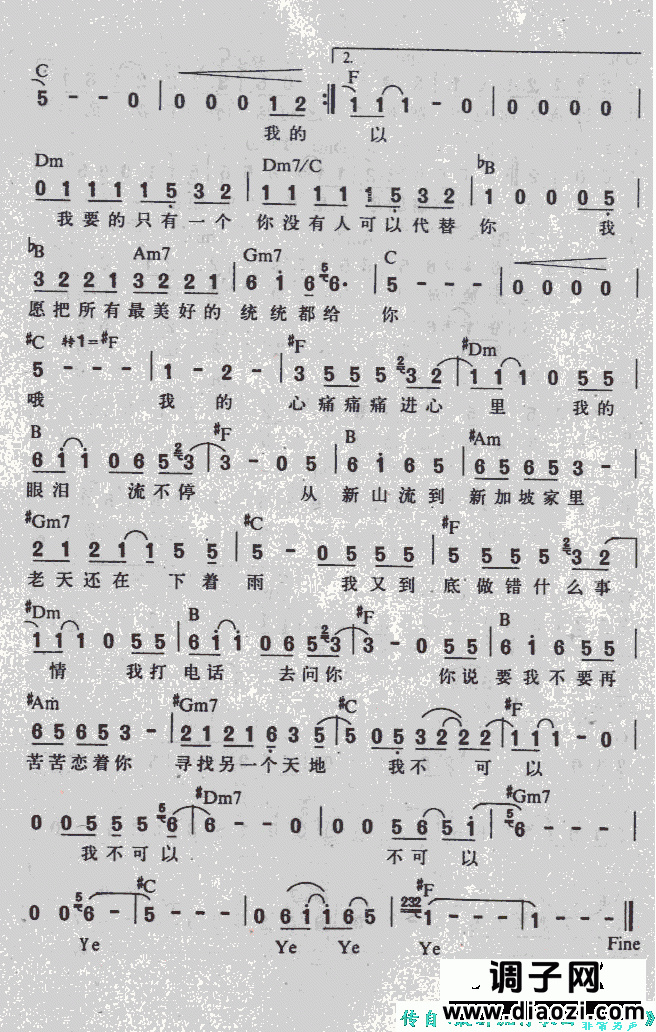 2.
C F
5 - - 0 | 0 0 0 1 2 :‖ 1 1 1 - 0 | 0 0 0 0 |
我的 以
Dm Dm7/C ♭B
0 1 1 1 1 5 3 2 | 1 1 1 1 1 5 3 2 | 1 0 0 0 5 |
我要的只有一个 你没有人可以代替 你 我
♭B Am7 Gm7 C
3 2 2 1 3 2 2 1 | 6 i 6 5 6· | 5 - - - | 0 0 0 0 |
愿把所有最美好的 统统都给 你
♯C 转1=♯F ♯F ♯Dm
5 - - - | 1 - 2 - | 3 5 5 5 2 3 2 | 1 1 1 0 5 5 |
哦 我 的 心痛痛痛进心 里 我的
B ♯F B ♯Am
6 i i 0 6 5 2 3 | 3 - 0 5 | 6 i 6 5 | 6 5 6 5 3 - |
眼泪 流不停 从 新山流到 新加坡家里
♯Gm7 ♯C ♯F
2 1 2 1 1 5 5 | 5 - 0 5 5 5 | 5 5 5 5 2 3 2 |
老天还在 下着 雨 我又到 底做错什么事
♯Dm B ♯F B
1 1 1 0 5 5 | 6 i i 0 6 5 2 3 | 3 - 0 5 5 | 6 i 6 5 5 |
情 我打 电话 去问你 你说 要我不要再
♯Am ♯Gm7 ♯C ♯F
6 5 6 5 3 - | 2 1 2 1 6 3 5 | 5 0 5 3 2 2 2 | 1 1 1 - 0 |
苦苦恋着你 寻找另一个天地 我不 可 以
♯Dm7 ♯Gm7
0 0 5 5 5 5 6 | 6 - - 0 | 0 0 5 6 5 i | 5 6 - - - |
我不可以 不可 以
♯C ♯F
0 0 5 6 - | 5 - - - | 0 6 i i 6 5 | 232 1 - - - | 1 - - - ‖
Ye Ye Ye Ye Fine
调子网
www.diaozi.com